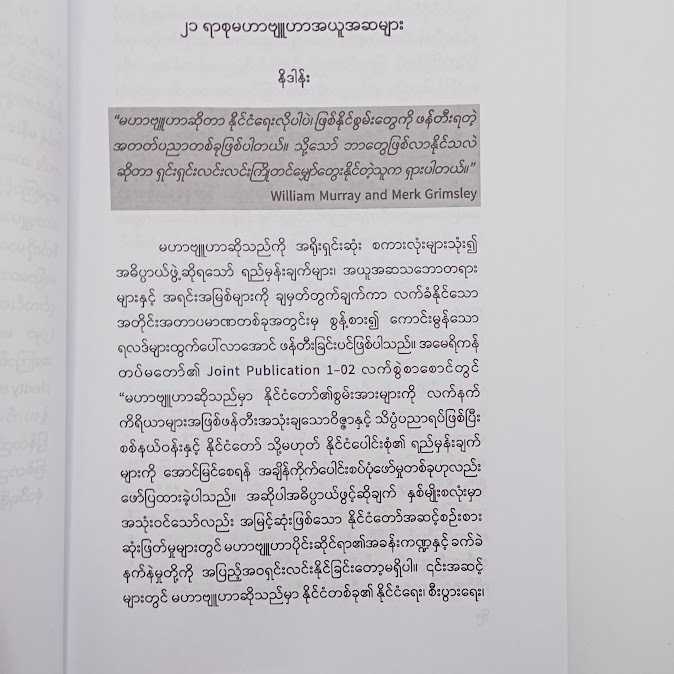 ၂၁ ရာစုမဟာဗျူဟာအယူအဆများ
နိဒါန်း
“မဟာဗျူဟာဆိုတာ နိုင်ငံရေးလိုပါပဲ၊ ဖြစ်နိုင်စွမ်းတွေကို ဖန်တီးရတဲ့
အတတ်ပညာတစ်ခုဖြစ်ပါတယ်။ သို့သော် ဘာတွေဖြစ်လာနိုင်သလဲ
ဆိုတာ ရှင်းရှင်းလင်းလင်းကြိုတင်မျှော်တွေးနိုင်တဲ့သူက ရှားပါတယ်။”
William Murray and Merk Grimsley
မဟာဗျူဟာဆိုသည်ကို အရိုးရှင်းဆုံး စကားလုံးများသုံး၍
အဓိပ္ပာယ်ဖွဲ့ဆိုရသော် ရည်မှန်းချက်များ၊ အယူအဆသဘောတရား
များနှင့် အရင်းအမြစ်များကို ချမှတ်တွက်ချက်ကာ လက်ခံနိုင်သော
အတိုင်းအတာပမာဏတစ်ခုအတွင်းမှ စွန့်စား၍ ကောင်းမွန်သော
ရလဒ်များထွက်ပေါ်လာအောင် ဖန်တီးခြင်းပင်ဖြစ်ပါသည်။ အမေရိကန်
တပ်မတော်၏ Joint Publication 1–02 လက်စွဲစာစောင်တွင်
“မဟာဗျူဟာဆိုသည်မှာ နိုင်ငံတော်၏စွမ်းအားများကို လက်နက်
ကိရိယာများအဖြစ်ဖန်တီးအသုံးချသောဝိဇ္ဇာနှင့် သိပ္ပံပညာရပ်ဖြစ်ပြီး
စစ်နယ်ဝန်းနှင့် နိုင်ငံတော် သို့မဟုတ် နိုင်ငံပေါင်းစုံ၏ ရည်မှန်းချက်
များကို အောင်မြင်စေရန် အချိန်ကိုက်ပေါင်းစပ်ပုံဖော်မှုတစ်ခုဟုလည်း
ဖော်ပြထားခဲ့ပါသည်။ အဆိုပါအဓိပ္ပာယ်ဖွင့်ဆိုချက် နှစ်မျိုးစလုံးမှာ
အသုံးဝင်သော်လည်း အမြင့်ဆုံးဖြစ်သော နိုင်ငံတော်အဆင့်စဉ်းစား
ဆုံးဖြတ်မှုများတွင် မဟာဗျူဟာပိုင်းဆိုင်ရာ၏အခန်းကဏ္ဍနှင့် ခက်ခဲ
နက်နဲမှုတို့ကို အပြည့်အဝရှင်းလင်းနိုင်ခြင်းတော့မရှိပါ။ ၎င်းအဆင့်
များတွင် မဟာဗျူဟာဆိုသည်မှာ နိုင်ငံတစ်ခု၏ နိုင်ငံရေး၊ စီးပွားရေး၊